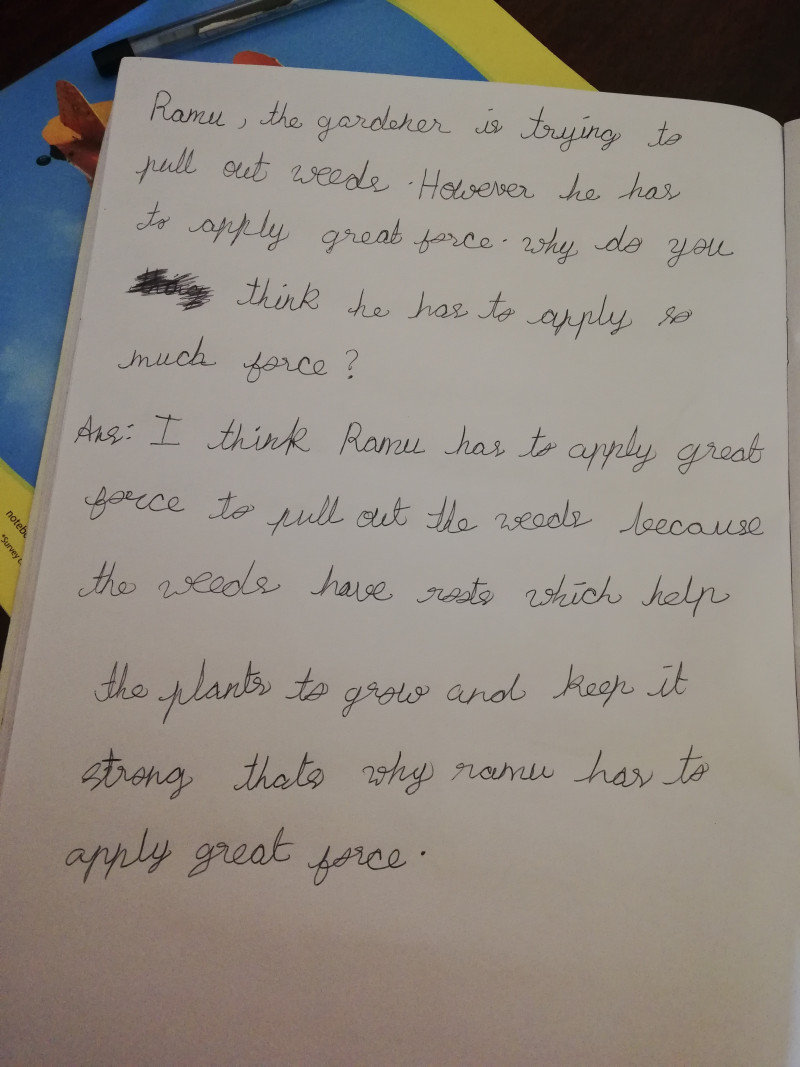 Ramu, the gardener is trying to
pull out weeds. However he has
to apply great force. why do you
think he has to apply so
much force?
Ans: I think Ramu has to apply great
force to pull out the weeds because
the weeds have roots which help
the plants to grow and keep it
strong thats why ramu has to
apply great force.